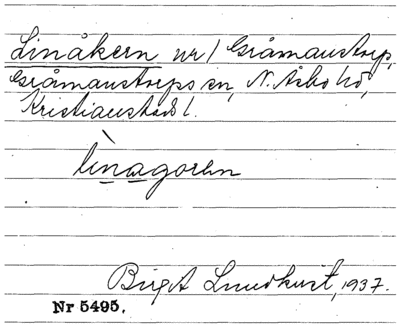 Linåkern nr 1 Gråmanstorp,
Gråmanstorps sn, N. Åsbo hd,
Kristianstads l.
lìnagoren
Birgit Lundkvist, 1937.
Nr 5495.